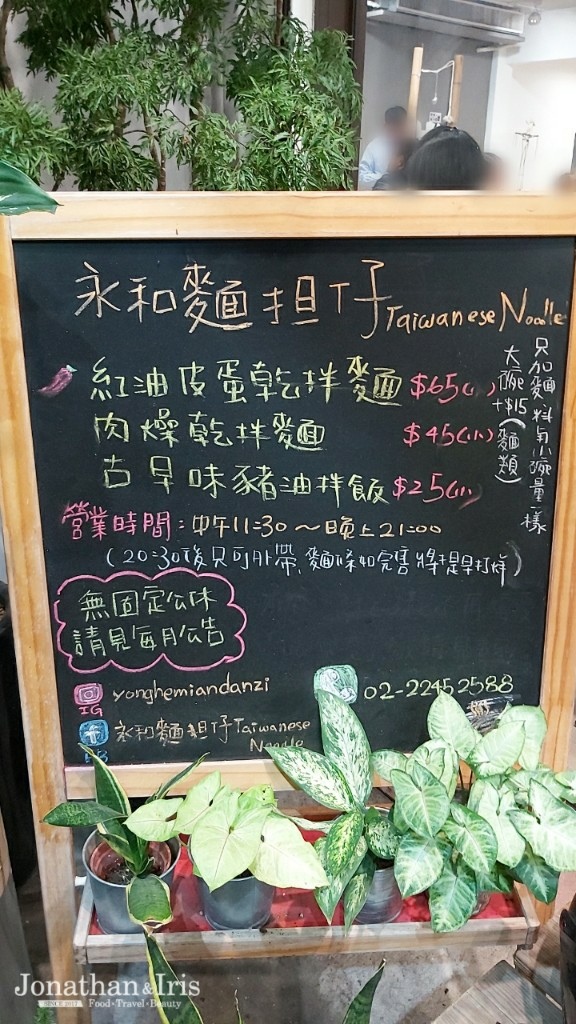 永和麵担仔Taiwanese Noodle
紅油皮蛋乾拌麵 $65(小)
肉燥乾拌麵 $45(小)
古早味豬油拌飯 $25(小)
大碗+$15(麵類)
只加麵 料與小碗量一樣
營業時間:中午11:30～晚上21:00
(20:30後只可外帶、麵條如完售將提早打烊)
無固定公休
請見每月公告
IG yonghemiandanzi
02-22452588
FB 永和麵担仔Taiwanese
Noodle
Jonathan&Iris
Food·Travel·Beauty